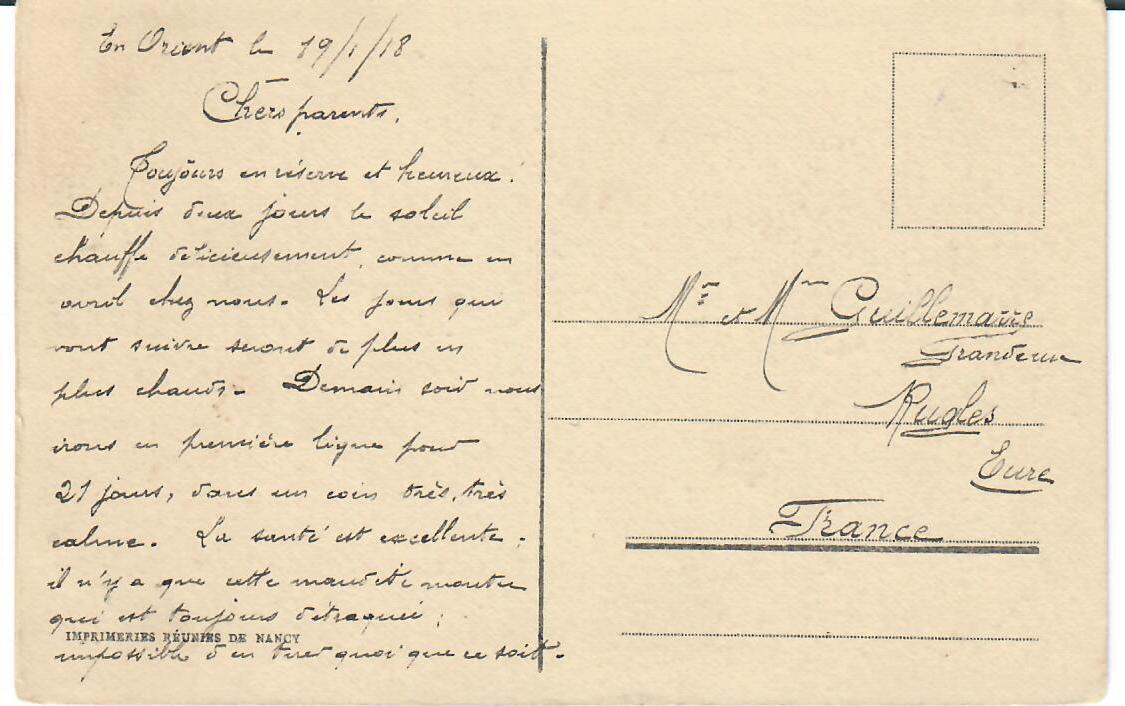 En Orient le 19/1/18
Chers parents,
Toujours en réserve et heureux !
Depuis deux jours le soleil
chauffe délicieusement, comme en
avril chez nous. Les jours qui
vont suivre seront de plus en
plus chauds. Demain soir nous
irons en première ligne pour
21 jours, dans un coin très, très
calme. La santé est excellente ;
il n'y a que cette maudite montre
qui est toujours détraquée ;
IMPRIMERIES RÉUNIES DE NANCY
impossible d'en tirer quoi que ce soit.
Mr et Mme Guillemare
Rugles
Eure
France